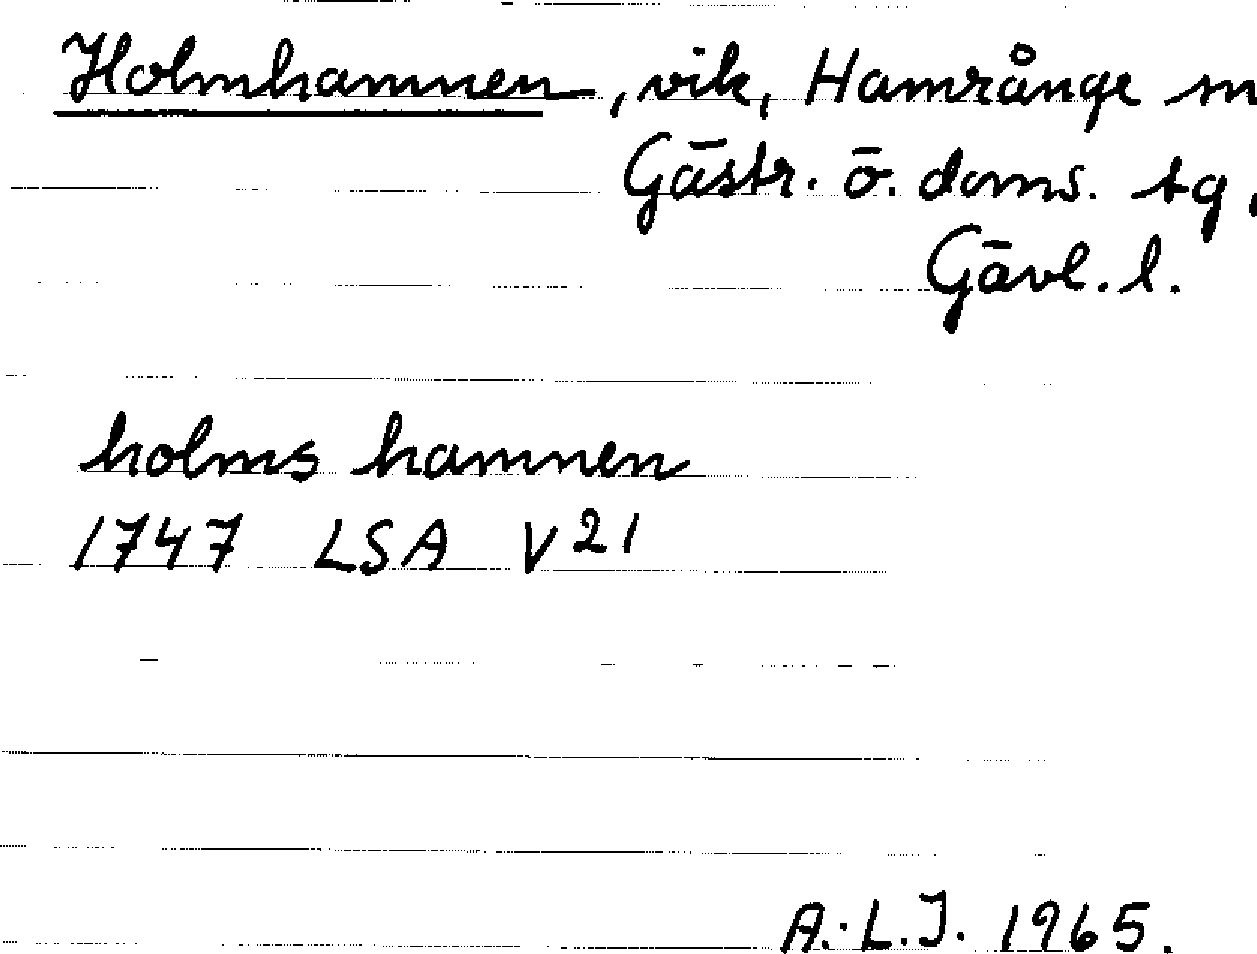 Holmhamnen, vik, Hamrånge sn
Gästr. ö. doms. tg,
Gävl. l.
holms hamnen
1747 LSA V21
A.-L.J. 1965.